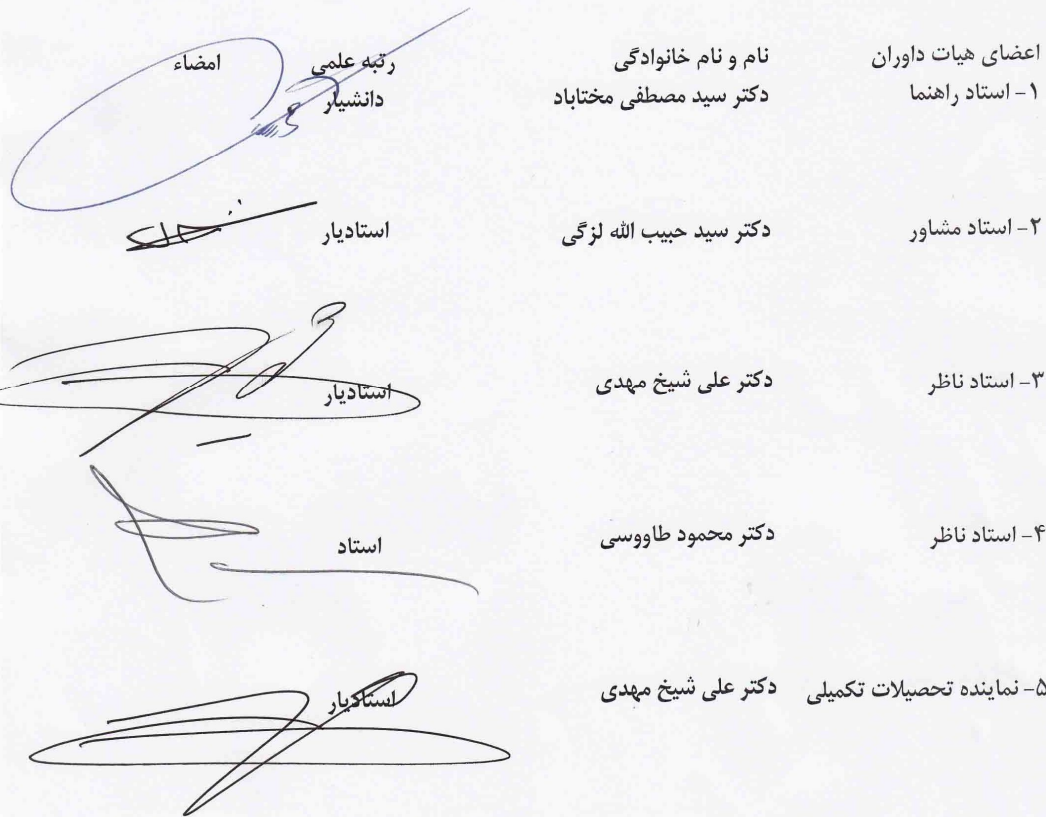 اعضای هیات داوران نام و نام خانوادگی رتبه علمی امضاء
۱- استاد راهنما دکتر سید مصطفی مختاباد دانشیار
۲- استاد مشاور دکتر سید حبیب الله لزگی استادیار
۳- استاد ناظر دکتر علی شیخ مهدی استادیار
۴- استاد ناظر دکتر محمود طاووسی استاد
۵- نماینده تحصیلات تکمیلی دکتر علی شیخ مهدی استادیار